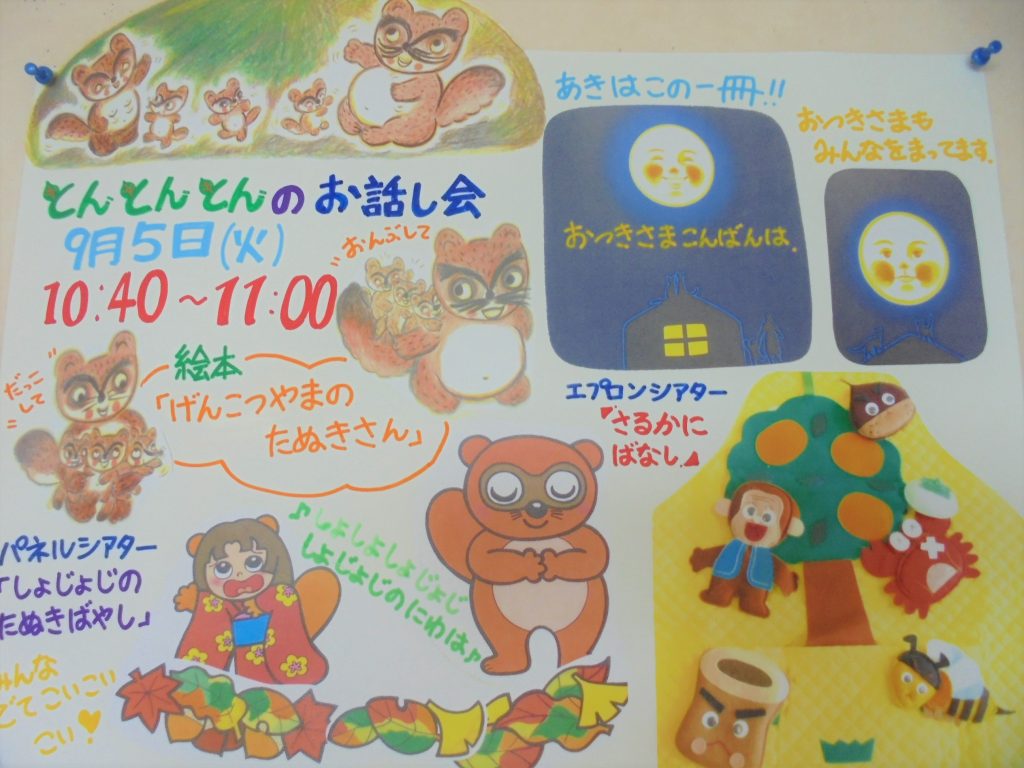 とんとんとんの お話し会
9月5日(火)
10:40～11:00
おんぶして
だっこ
して
絵本
「げんこつやまの
たぬきさん」
パネルシアター
「しょじょじの
たぬきばやし」
♪しょしょしょじょじ
しょじょじのにわは♪
みんな
でてこいこい
こい!♡
あきはこの一冊!!
おつきさまこんばんは.
おつきさまも
みんなをまってます.
エプロンシアター
『さるかに
ばなし』